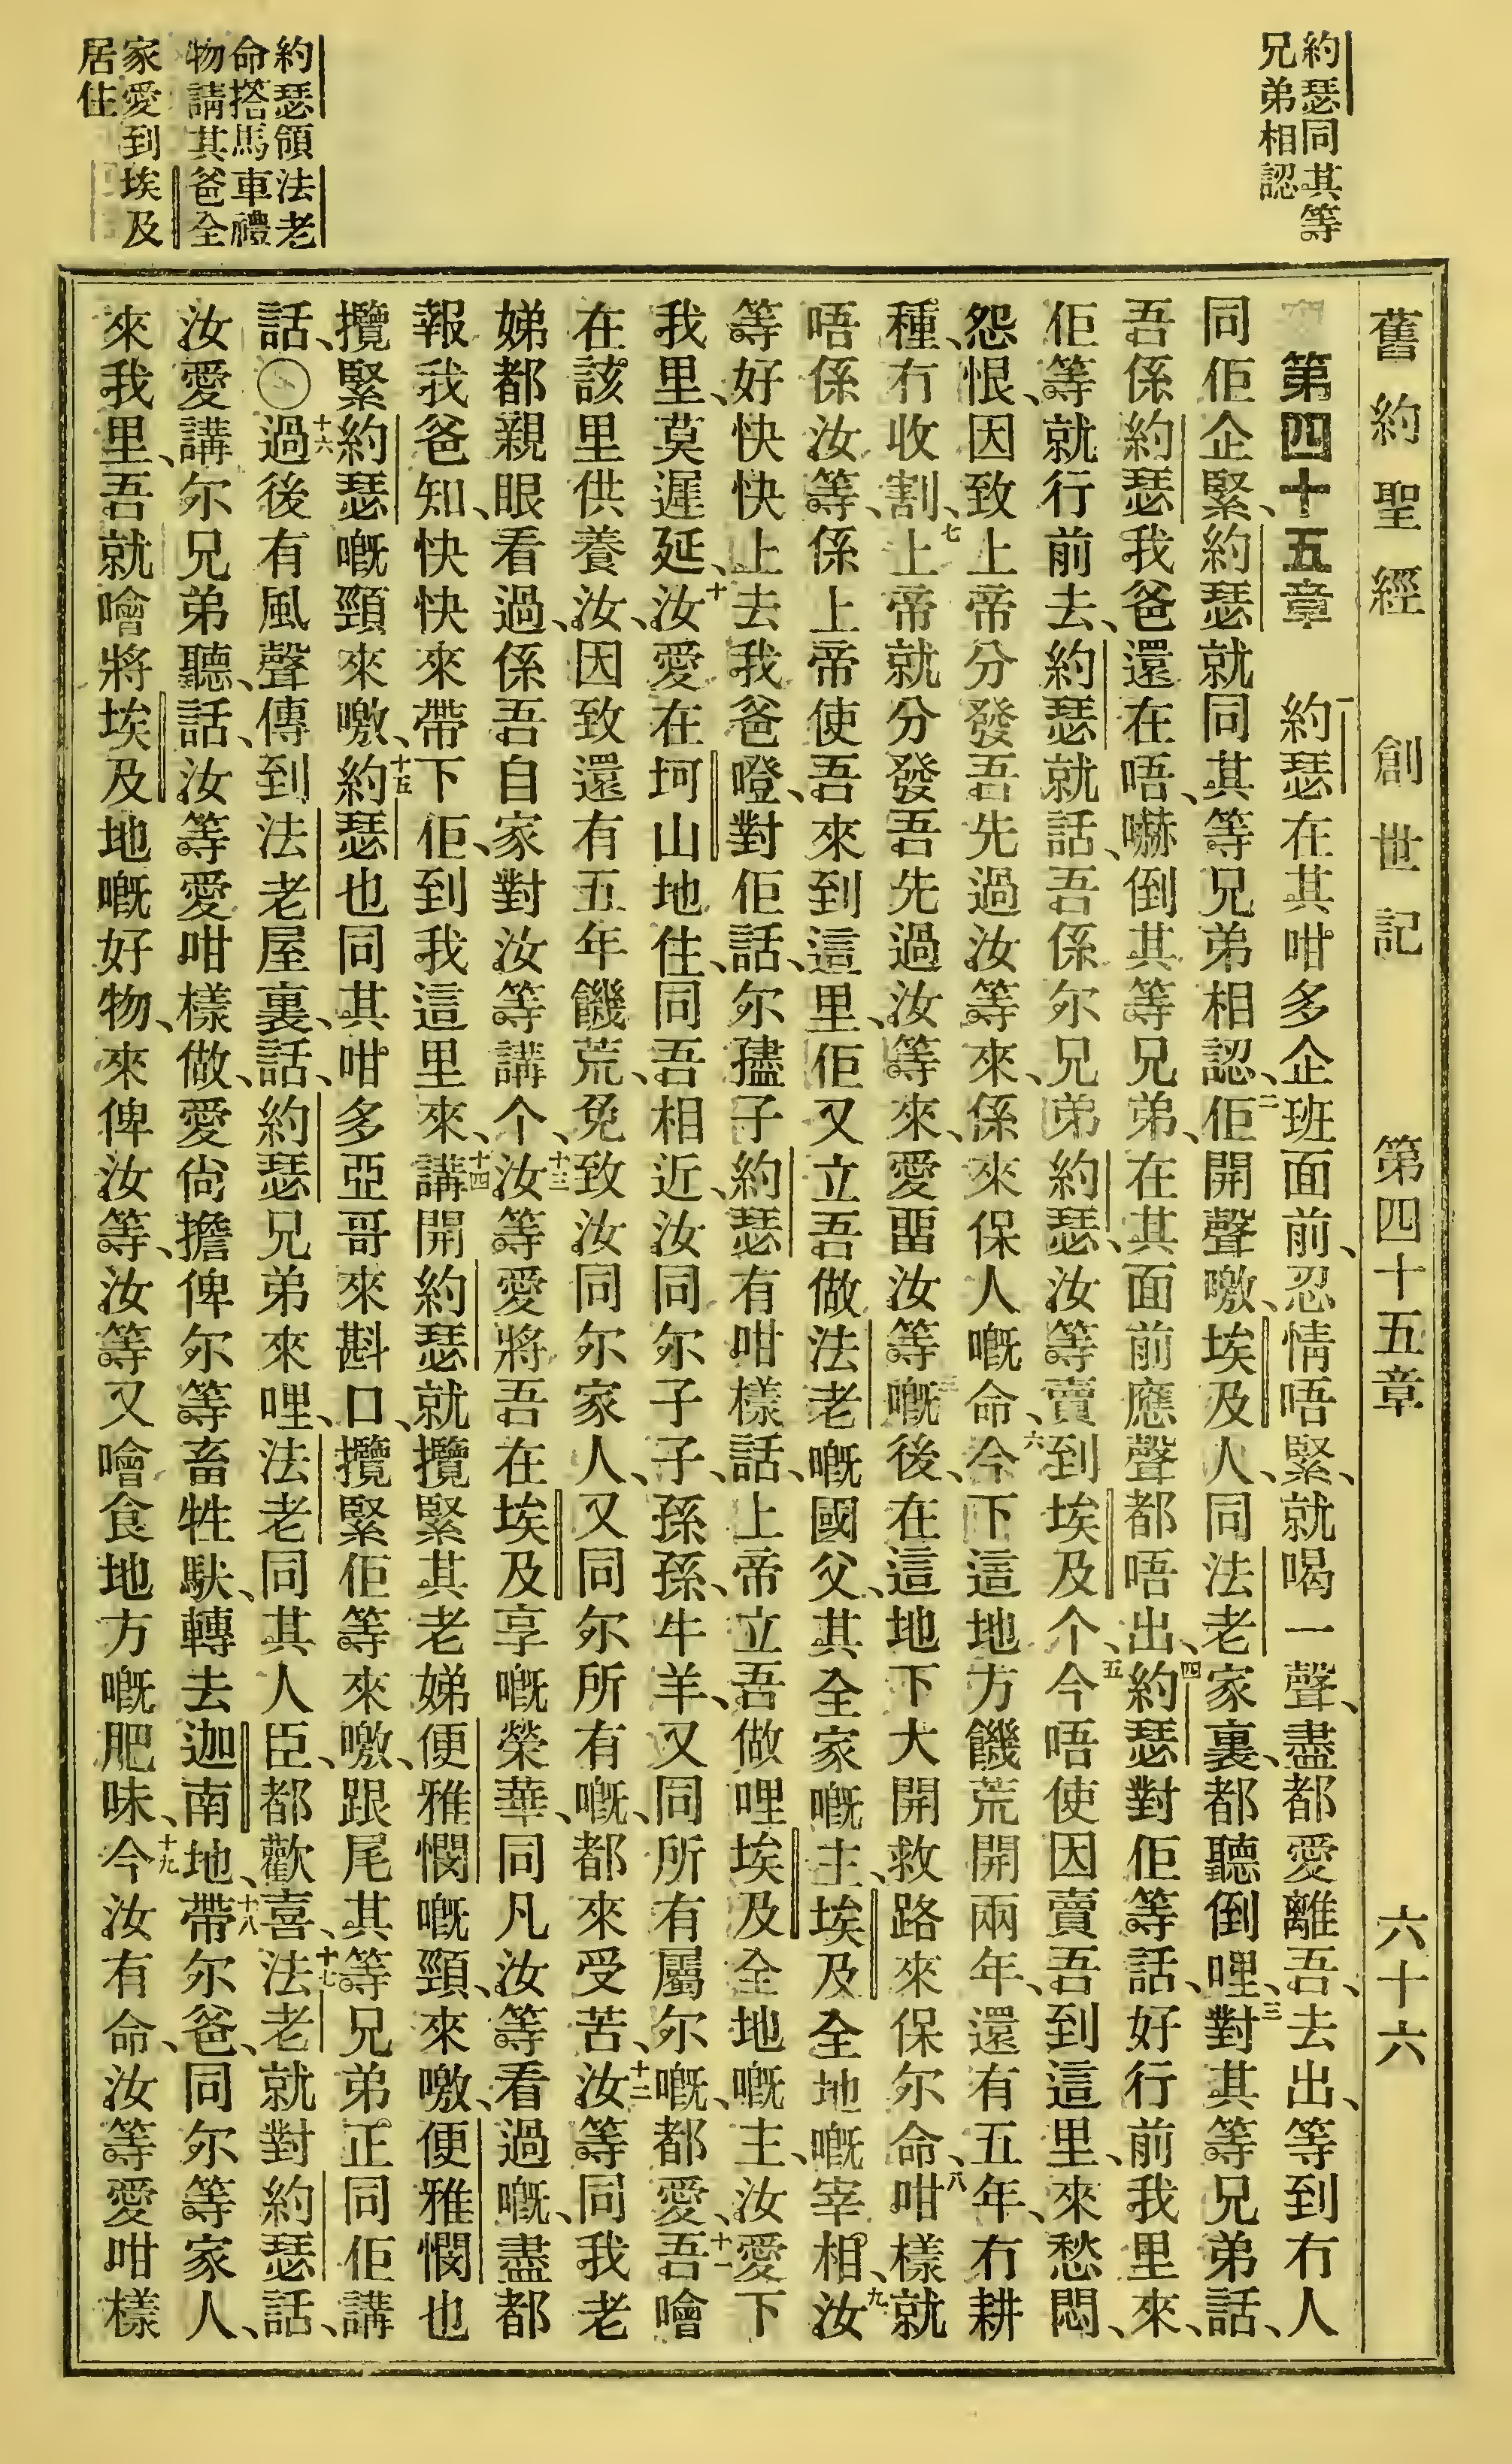 約瑟同其等
兄弟相認
約瑟領法老
命撘馬車禮
物請其爸全
家愛到埃及
居住
舊約聖經 創世記 第四十五章 六十六
第四十五章 約瑟在其咁多企班面前、忍情唔緊、就喝一聲、盡都愛離吾、去出、等到冇人
同佢企緊、約瑟就同其等兄弟相認、二佢開聲噭、埃及人、同法老家裏、都聽倒哩、三對其等兄弟話、
吾係約瑟、我爸還在唔、嚇倒其等兄弟、在其面前應聲都唔出、四約瑟對佢等話、好行前我里來、
佢等就行前去、約瑟就話、吾係尔兄弟約瑟、汝等賣到埃及个、五今唔使因賣吾到這里、來愁悶、
怨恨、因致上帝分發吾先過汝等來、係來保人嘅命、六今下這地方饑荒開兩年、還有五年、冇耕
種、冇收割、七上帝就分發吾先過汝等來、愛畱汝等嘅後、在這地下大開救路來保尔命、八咁樣就
唔係汝等、係上帝使吾來到這里、佢又立吾做法老嘅國父、其全家嘅主、埃及全地嘅宰相、九汝
等好快快上去我爸嶝、對佢話、尔孻子約瑟有咁樣話、上帝立吾做哩埃及全地嘅主、汝愛下
我里、莫遲延、十汝愛在坷山地住、同吾相近、汝同尔子子、孫孫、牛羊、又同所有屬尔嘅、都愛、十一吾噲
在該里供養汝、因致還有五年饑荒、免致汝同尔家人、又同尔所有嘅、都來受苦、十二汝等同我老
娣都親眼看過、係吾自家對汝等講个、十三汝等愛將吾在埃及享嘅榮華、同凡汝等看過嘅、盡都
報我爸知、快快來帶下佢、到我這里來、十四講開約瑟就攬緊其老娣便雅憫嘅頸、來噭、便雅憫也
攬緊約瑟嘅頸來噭、十五約瑟也同其咁多亞哥來斟口、攬緊佢等來噭、跟尾其等兄弟正同佢講
話、○十六過後有風聲傳到法老屋裏、話、約瑟兄弟來哩、法老同其人臣、都歡喜、十七法老就對約瑟話、
汝愛講尔兄弟聽、話、汝等愛咁樣做、愛尙擔俾尔等畜牲馱、轉去迦南地、十八帶尔爸、同尔等家人、
來我里、吾就噲將埃及地嘅好物、來俾汝等、汝等又噲食地方嘅肥味、十九今汝有命、汝等愛咁樣